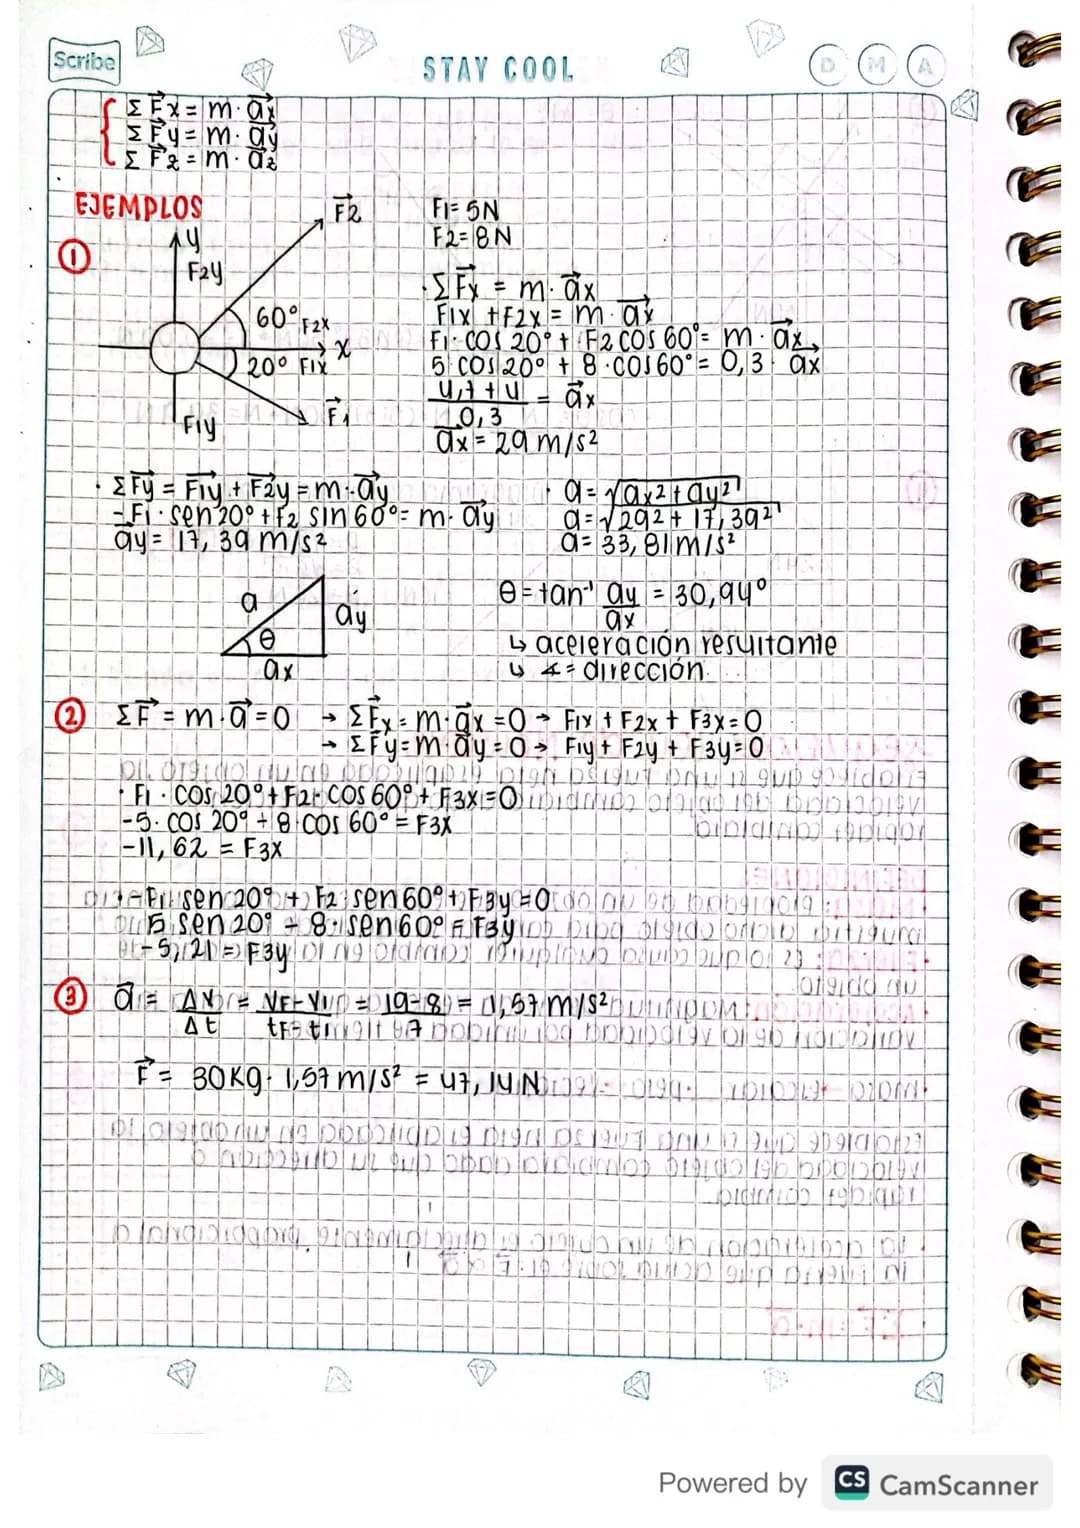 Scribe
STAY COOL
D M A
Σ F⃗x = m · a⃗x
Σ F⃗y = m · a⃗y
Σ F⃗z = m · a⃗z
EJEMPLOS
①
y
F⃗2
F2y
60° F2x
x
20° F1x
F⃗1
F1y
F1= 5N
F2= 8N
· Σ F⃗x = m · a⃗x
F1x + F2x = m · a⃗x
F1 · cos 20° + F2 cos 60° = m · a⃗x
5 · cos 20° + 8 · cos 60° = 0,3 · a⃗x
4,7 + 4 / 0,3 = a⃗x
a⃗x = 29 m/s²
· Σ F⃗y = F⃗1y + F⃗2y = m · a⃗y
- F1 · sen 20° + F2 sin 60° = m · a⃗y
a⃗y = 17,39 m/s²
· a = √ax² + ay²
a = √29² + 17,39²
a = 33,81 m/s²
a
ay
θ
ax
θ = tan⁻¹ ay / ax = 30,94°
↳ aceleración resultante
↳ ∡ = dirección
② Σ F⃗ = m · a⃗ = 0 → Σ F⃗x = m · a⃗x = 0 → F1x + F2x + F3x = 0
→ Σ F⃗y = m · a⃗y = 0 → F1y + F2y + F3y = 0
· F1 · cos 20° + F2 · cos 60° + F3x = 0
-5 · cos 20° + 8 cos 60° = F3x
-11,62 = F3x
- F1 · sen 20° + F2 · sen 60° + F3y = 0
5 sen 20° - 8 · sen 60° = F3y
-5,21 = F3y
③ a⃗ = Δv / Δt = vF - vi / tF - ti = 19 - 8 / 7 = 1,57 m/s²
F⃗ = 30Kg · 1,57 m/s² = 47,14 N
Powered by CS CamScanner